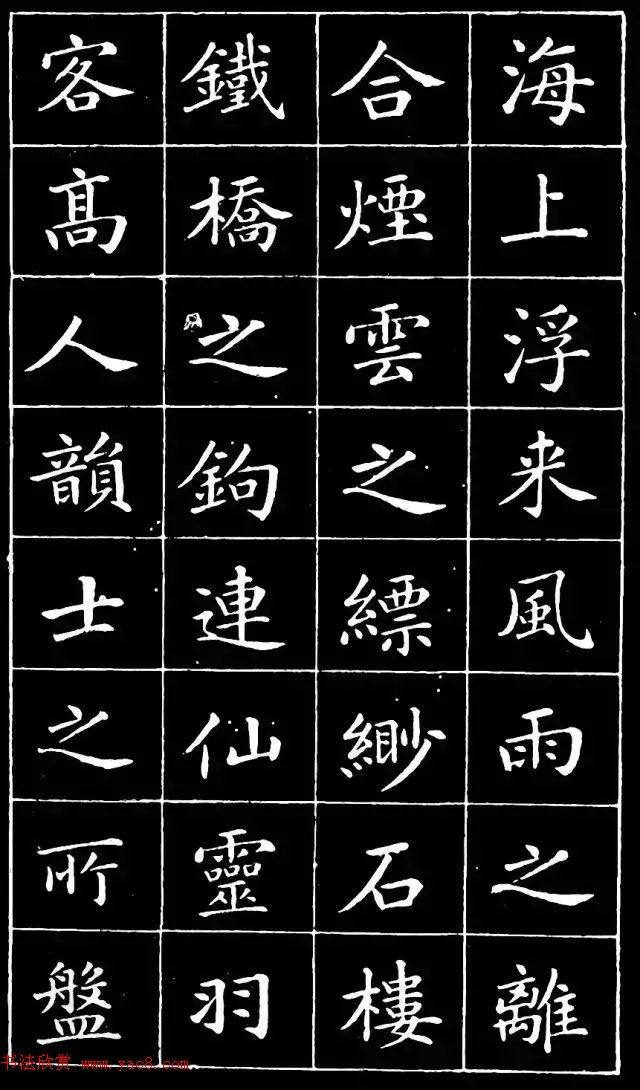 海上浮来風雨之離
合煙雲之縹緲石樓
鐵橋之鉤連仙靈羽
客髙人韻士之所盤
书法欣赏 www.yac8.com